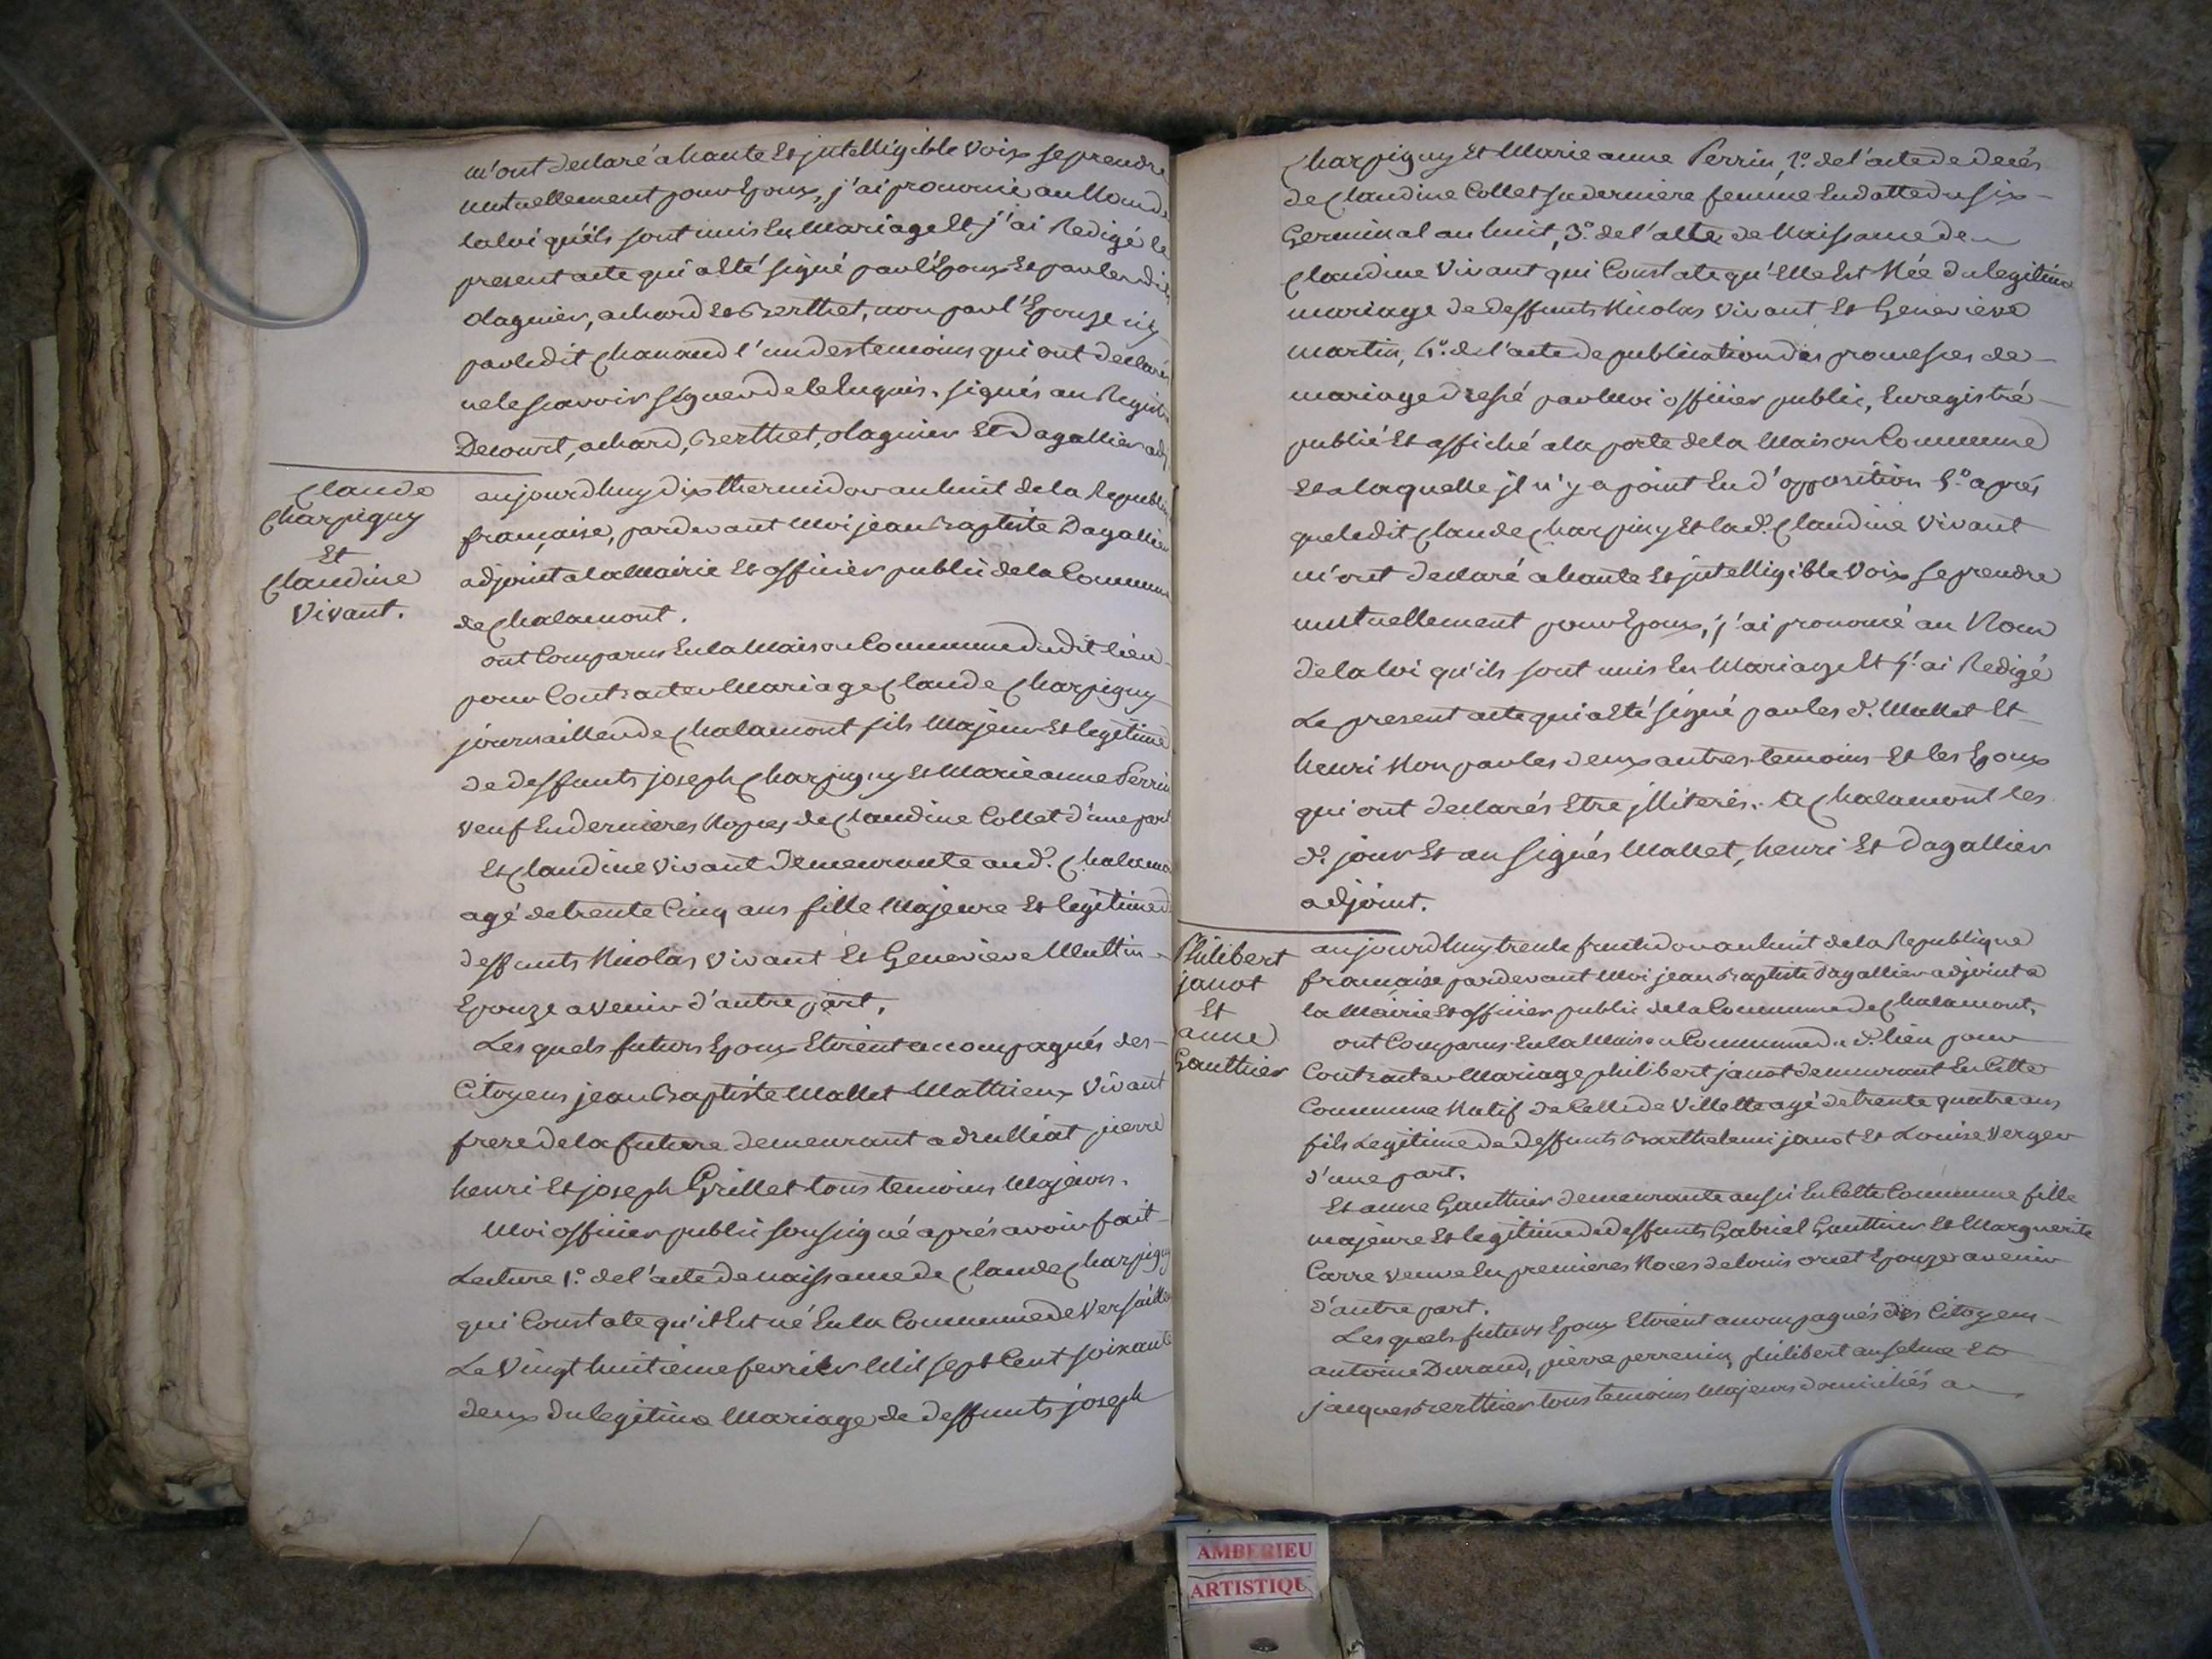 m'ont declaré a haute Et jntelligible Voix se prendre
mutuellement pour Epoux, j'ai prononcé au Nom de
la loi qu'ils sont unis En Mariage Et j'ai Redigé le
present acte qui a Eté signé par l'Epoux Et par lesdits
olagnier, achard Et Berthet, non par l'Epouze ni
par ledit Chanaud l'un des temoins qui ont declarés
ne le sçavoir signer de ce Enquis. signés au Registre
Decourt, achard, Berthet, olagnier Et Dagallier adj
Claude
Charpiguy
Et
Claudine
Vivant.
aujourdhuy dix thermidor an huit de la Republi
française, pardevant Moi jean Baptiste Dagallier
adjoint a la Mairie Et officier public de la Commune
de Chalamont.
ont Comparus En la Maison Commune dudit lieu
pour Contracter Mariage Claude Charpiguy
journaillier de Chalamont fils Majeur Et legitime
de deffunts joseph Charpiguy Et Marie anne Perrin
Veuf En dernieres Noces de Claudine Collet d'une part
Et Claudine Vivant demeurante aud.t Chalamo
agé de trente Cinq ans fille Majeure Et legitime d
deffunts Nicolas Vivant Et Genevieve Mattin
Epouze a Venir d'autre part.
Les quels futurs Epoux Etoient accompagnés des
Citoyens jean Baptiste Mallet Mathieux Vivant
frere de la future demeurant a druilliat pierre
henri Et joseph Grillet tous temoins Majeurs.
Moi officier public soussigné aprés avoir fait
Lecture 1.º de l'acte de naissance de Claude Charpiguy
qui Constate qu'il Est né En la Commune de Versailleu
Le Vingt huitieme fevrier Mil sept Cent soixante
deux du legitime Mariage de deffunts joseph
Charpiguy Et Marie anne Perrin, 2.º de l'acte de decés
de Claudine Collet sa derniere femme En datte du six
Germinal an huit, 3.º de l'acte de Naissance de
Claudine Vivant qui Constate qu'Elle Est Née du legitime
mariage de deffunts Nicolas Vivant Et Genevieve
martin, 4.º de l'acte de publication des promesses de
mariage dressé par Moi officier public, Enregistré
publié Et affiché a la porte de la Maison Commune
Et a laquelle jl n'y a point Eu d'opposition 5.º aprés
que ledit Claude Charpiny Et lad.e Claudine Vivant
m'ont declaré a haute Et jntelligible Voix se prendre
mutuellement pour Epoux, j'ai prononcé au Nom
de la loi qu'ils sont unis En Mariage Et j'ai Redigé
Le present acte qui a Eté signé par les d.s Mallet Et
henri Non par les deux autres temoins Et les Epoux
qui ont declarés Etre jlliterés. a Chalamont les
d.s jour Et an signés Mallet, henri Et Dagallier
adjoint.
Philibert
janot
Et
anne
Gauthier
aujourdhuy trente fructidor an huit de la Republique
francaise pardevant Moi jean Baptiste Dagallier adjoint a
la Mairie Et officier public de la Commune de Chalamont,
ont Comparus En la Maison Commune du d.t lieu pour
Contracter Mariage philibert janot demeurant En Cette
Commune Natif de Celle de Villette agé de trente quatre ans
fils Legitime de deffunts Barthelemi janot Et Louise Verger
d'une part.
Et anne Gauthier demeurante aussi En Cette Commune fille
majeure Et legitime de deffunts Gabriel Gauthier Et Marguerite
Carre Veuve En premieres Noces de louis oret Epouze a venir
d'autre part.
Les quels futurs Epoux Etoient accompagnés des Citoyens
antoine Durand, pierre perrenin, philibert anselme Et
jacques Berthier tous temoins Majeurs domiciliés a
AMBERIEU
ARTISTIQU